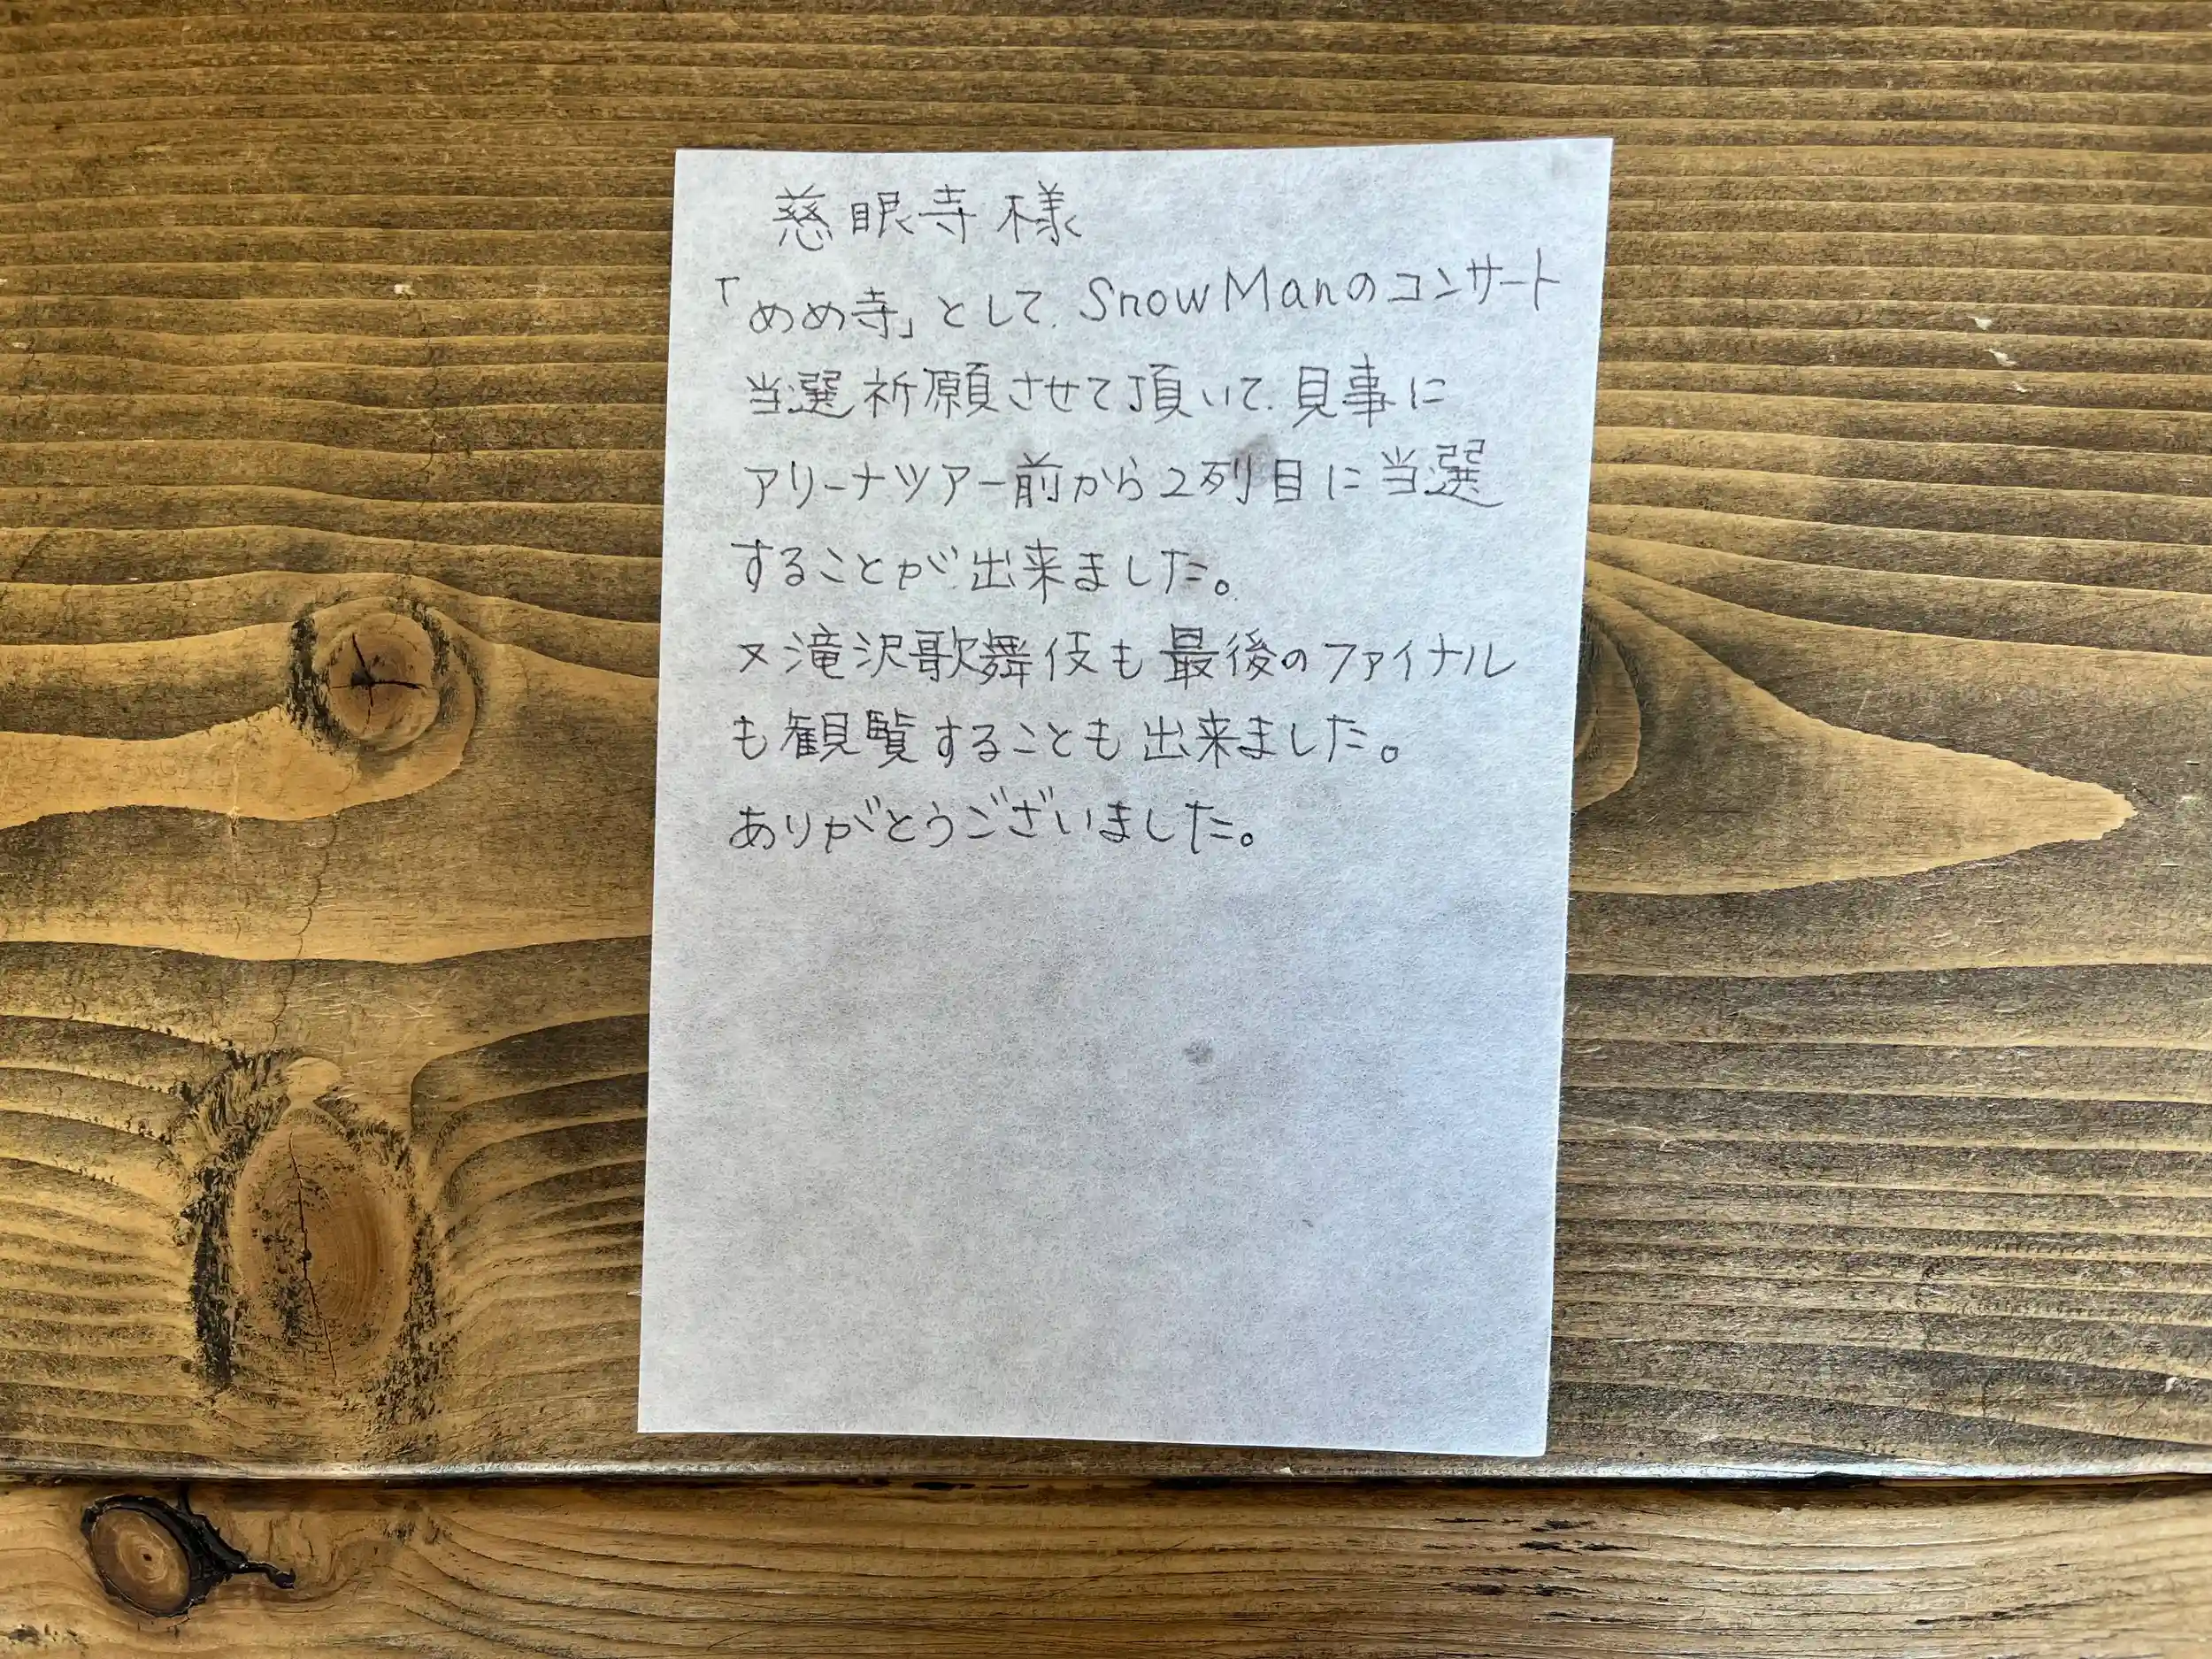 慈眼寺様
「めめ寺」として、SnowManのコンサート
当選祈願させて頂いて、見事に
アリーナツアー前から2列目に当選
することが出来ました。
又滝沢歌舞伎も最後のファイナル
も観覧することも出来ました。
ありがとうございました。